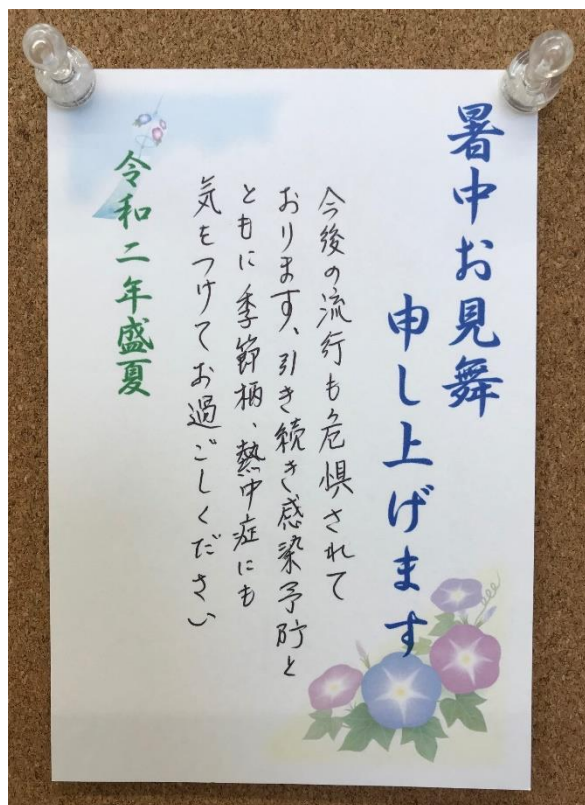 暑中お見舞
申し上げます
今後の流行も危惧されて
おります、引き続き感染予防と
ともに季節柄、熱中症にも
気をつけてお過ごしください
令和二年盛夏